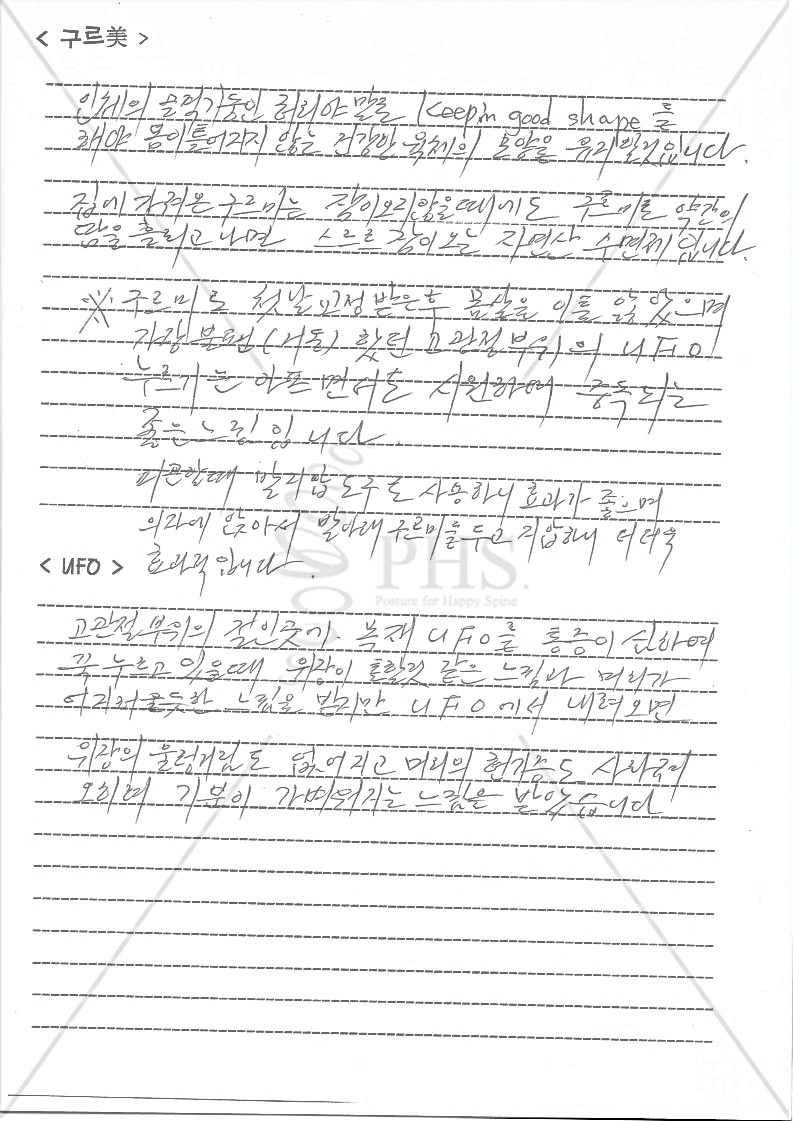 < 구르美 >
인체의 골격기둥인 허리야말로 Keepin good shape를
해야 몸이 틀어지지 않는 건강한 육체의 모양을 유지 입니다.
집에 가져온 구르미는 잠이오지않을때에도 구르미로 약간의
땀을 흘리고나면 스르르 잠이오는 자연산 수면제 입니다.
※ 구르미로 첫날 교정 받은후 몸살을 이틀 앓았으며
가장 했던 고관절부위의 UFO
누르기는 아프면서도 시원하여 중독되는
좋은느낌입니다.
피곤할때 발지압도구로 사용하니 효과가 좋으며
의자에 앉아서 발아래 구르미를 두고 지압하니 더더욱
효과적입니다.
< UFO >
고관절부위의 목재 UFO를 통증이 심하여
꾹 누르고 있을때 위장이 같은 느낌과 머리가
어지러울듯한 느낌을 받지만 UFO에서 내려오면
위장의 울렁거림도 없어지고 머리의 현기증도 사라지며
오히려 기분이 가벼워지는 느낌을 받았습니다
PHS.
Posture for Happy Spine